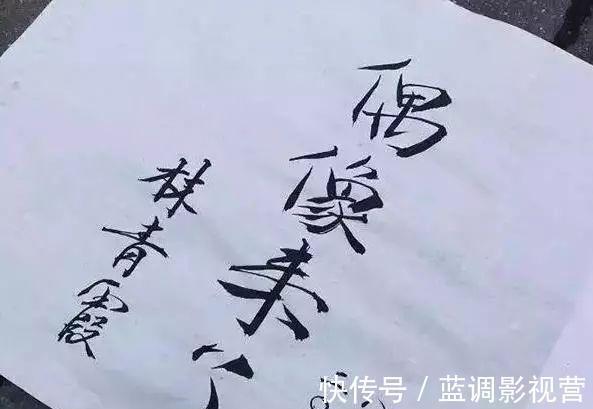 偶像来
林青霞
快传号 / 蓝调影视营